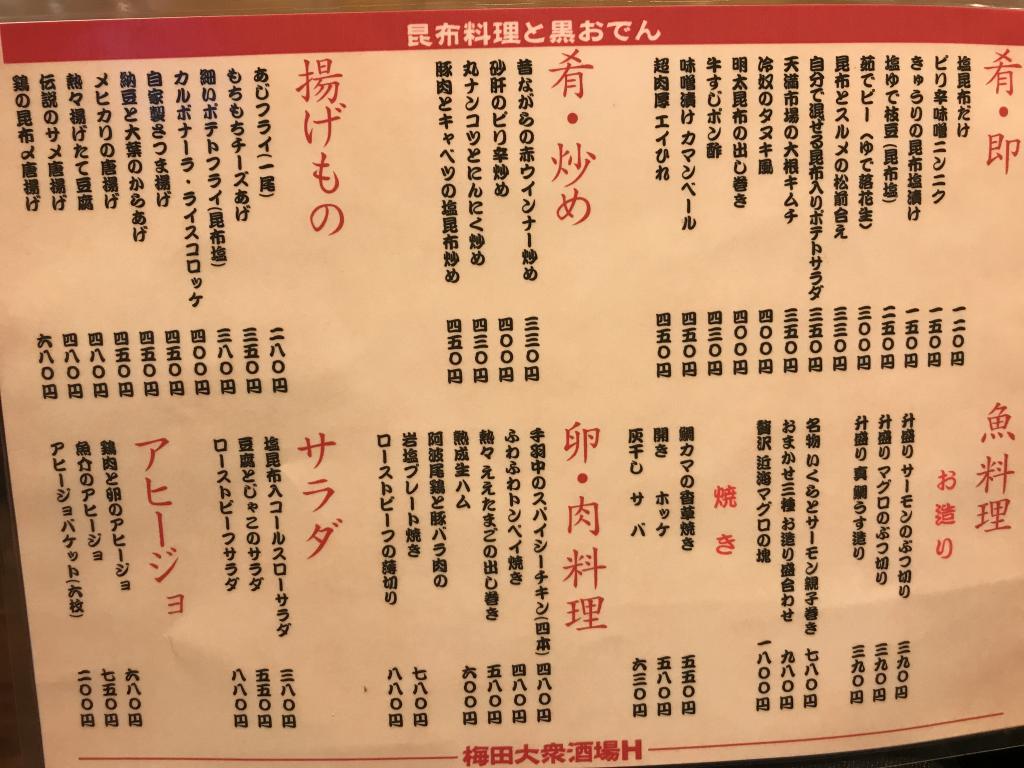 昆布料理と黒おでん
肴・即
塩昆布だけ 一二〇円
ピリ辛味噌ニンニク 一五〇円
きゅうりの昆布塩漬け 一五〇円
塩ゆで枝豆(昆布塩) 二五〇円
茹でピー(ゆで落花生) 三〇〇円
昆布とスルメの松前合え 三三〇円
自分で混ぜる昆布入りポテトサラダ 三五〇円
天満市場の大根キムチ 三五〇円
冷奴のタヌキ風 四〇〇円
明太昆布の出し巻き 四〇〇円
牛すじポン酢 四三〇円
味噌漬け カマンベール 四五〇円
超肉厚 エイひれ 四五〇円
肴・炒め
昔ながらの赤ウインナー炒め 三三〇円
砂肝のピリ辛炒め 四〇〇円
丸ナンコツとにんにく炒め 四三〇円
豚肉とキャベツの塩昆布炒め 四五〇円
揚げもの
あじフライ(一尾) 二八〇円
もちもちチーズあげ 三五〇円
細いポテトフライ(昆布塩) 三八〇円
カルボナーラ・ライスコロッケ 四〇〇円
自家製さつま揚げ 四五〇円
納豆と大葉のからあげ 四五〇円
メヒカリの唐揚げ 四五〇円
熱々揚げたて豆腐 四八〇円
伝説のサメ唐揚げ 四八〇円
鶏の昆布〆唐揚げ 六八〇円
魚料理
お造り
升盛り サーモンのぶつ切り 三九〇円
升盛り マグロのぶつ切り 三九〇円
升盛り 真鯛うす造り 三九〇円
名物 いくらとサーモン親子巻き 七八〇円
おまかせ三種 お造り盛合わせ 九八〇円
贅沢 近海マグロの塊 一八〇〇円
焼き
鯛カマの香草焼き 五五〇円
開き ホッケ 五八〇円
灰干し サバ 六三〇円
卵・肉料理
手羽中のスパイシーチキン(四本) 四八〇円
ふわふわトンペイ焼き 四八〇円
熱々 ええたまごの出し巻き 五八〇円
熟成生ハム 六〇〇円
阿波尾鶏と豚バラ肉の
岩塩プレート焼き 七八〇円
ローストビーフの薄切り 八八〇円
サラダ
塩昆布入コールスローサラダ 三八〇円
豆腐とじゃこのサラダ 五五〇円
ローストビーフサラダ 八八〇円
アヒージョ
鶏肉と卵のアヒージョ 六八〇円
魚介のアヒージョ 七五〇円
アヒージョバケット(六枚) 二〇〇円
梅田大衆酒場H